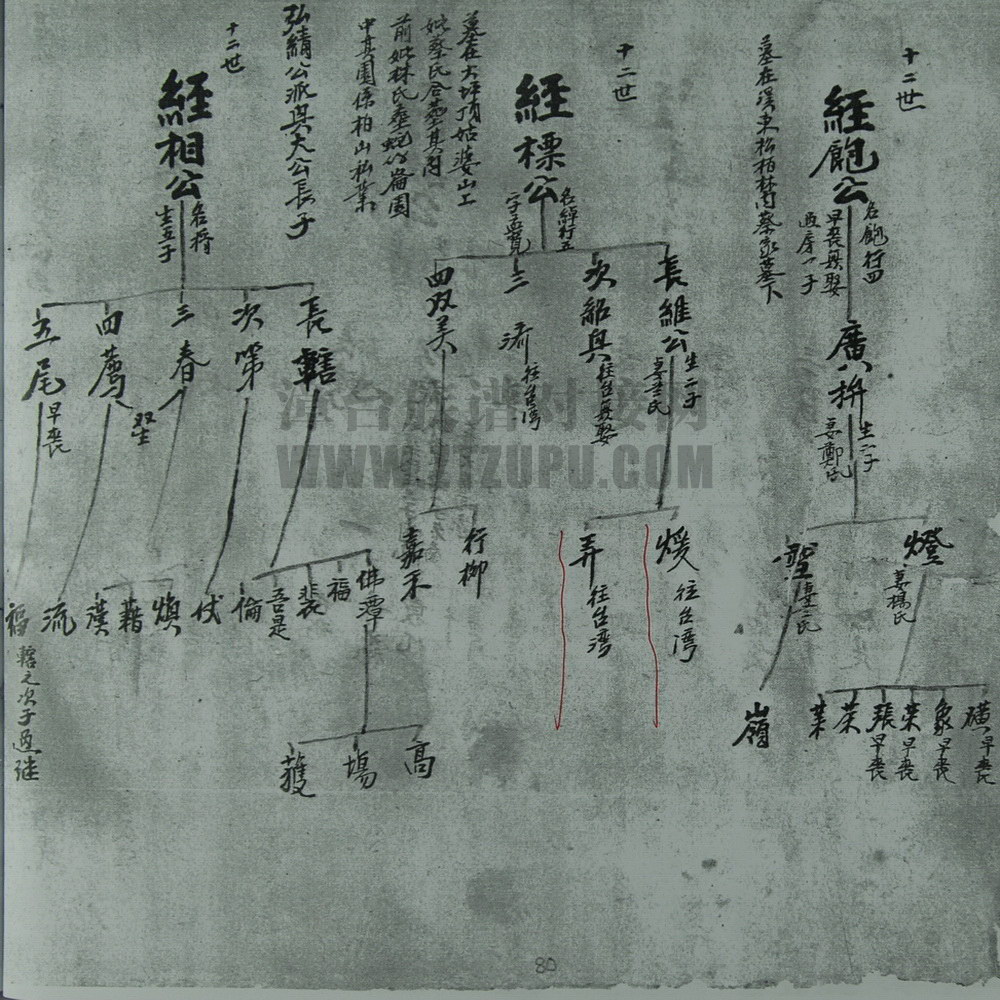 十二世
經飽公
名飽行四
早喪無娶
過房一子
墓在溪東松柏林內蔡家墓下
廣八
生二子
妻鄭氏
燈
妻楊氏
聖
磺早喪
象早喪
榮早喪
張早喪
茱
業
嶺
十二世
經標公
名綷行五
字孟寬
墓在大坪頂姑婆山工
妣蔡氏合葬其內
前妣林氏葬蛇仔崙園
中其園係柏山私業
長維公
生二子
次紹興
往台無娶
三濟
往台灣
四双美
煖
往台灣
弄
往台灣
行柳
嘉禾
十二世
弘績公派興夫公長子
經相公
名搢
生五子
長轄
次第
三春
四薦
双生
五尾
早喪
佛潭
福
裴
吾是
倫
高
塲
获
伏
煥
藉
漢
流
福
轄之次子過继
漳台族谱对接网
WWW.ZTZUPU.COM
80